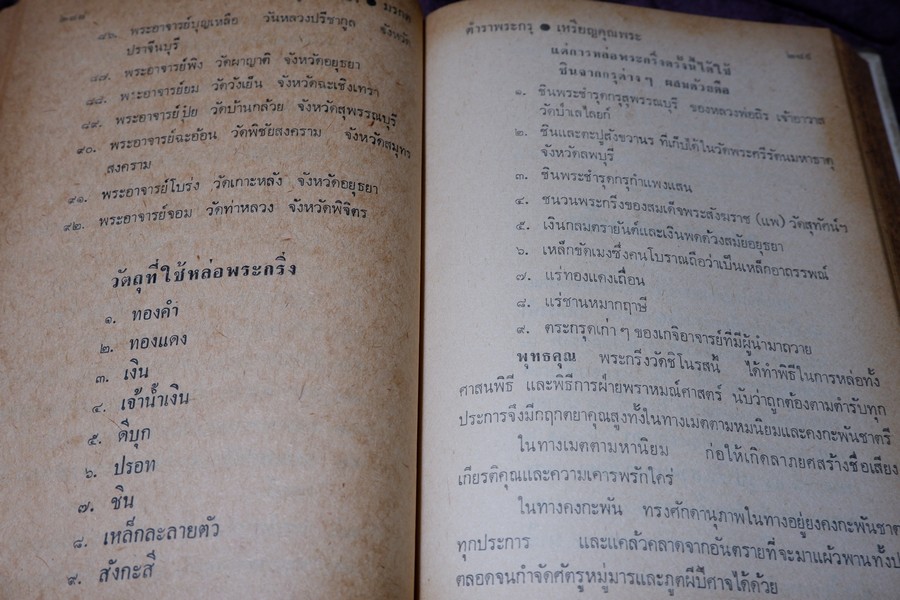 ๒๘๘ ● มรกต
๘๖. พระอาจารย์บุญเหลือ วันหลวงปรีชากูล จังหวัด
ปราจีนบุรี
๘๗. พระอาจารย์พิง วัดผาญาติ จังหวัดอยุธยา
๘๘. พระอาจารย์ยม วัดวังเย็น จังหวัดฉะเชิงเทรา
๘๙. พระอาจารย์ปุ้ย วัดบ้านกล้วย จังหวัดสุพรรณบุรี
๙๐. พระอาจารย์ฉะอ้อน วัดพิชัยสงคราม จังหวัดสมุทร
สงคราม
๙๑. พระอาจารย์โบร่ง วัดเกาะหลัง จังหวัดอยุธยา
๙๒. พระอาจารย์จอม วัดท่าหลวง จังหวัดพิจิตร
วัตถุที่ใช้หล่อพระกริ่ง
๑. ทองคำ
๒. ทองแดง
๓. เงิน
๔. เจ้าน้ำเงิน
๕. ดีบุก
๖. ปรอท
๗. ชิน
๘. เหล็กละลายตัว
๙. สังกะสี
ตำราพระกรุ ● เหรียญคุณพระ ๒๘๙
แต่การหล่อพระกริ่งครั้งนี้ได้ใช้
ชินจากกรุต่าง ๆ ผสมด้วยคือ
๑. ชินพระชำรุดกรุสุพรรณบุรี ของหลวงพ่อถิร เจ้าอาวาส
วัดป่าเลไลยก์
๒. ชินและตะปูสังขวานร ที่เก็บได้ในวัดพระศรีรัตนมหาธาตุ
จังหวัดลพบุรี
๓. ชินพระชำรุดกรุกำแพงแสน
๔. ชนวนพระกริ่งของสมเด็จพระสังฆราช (แพ) วัดสุทัศน์ฯ
๕. เงินกลมตรายันต์และเงินพดด้วงสมัยอยุธยา
๖. เหล็กขัดเมงซึ่งคนโบราณถือว่าเป็นเหล็กอาถรรพณ์
๗. แร่ทองแดงเถื่อน
๘. แร่ชานหมากฤาษี
๙. ตระกรุดเก่า ๆ ของเกจิอาจารย์ที่มีผู้นำมาถวาย
พุทธคุณ พระกริ่งวัดชิโนรสนี้ ได้ทำพิธีในการหล่อทั้ง
ศาสนพิธี และพิธีการฝ่ายพราหมณ์ศาสตร์ นับว่าถูกต้องตามตำรับทุก
ประการจึงมีกฤกตยาคุณสูงทั้งในทางเมตตามหมนิยมและคงกะพันชาตรี
ในทางเมตตามหานิยม ก่อให้เกิดลาภยศสร้างชื่อเสียง
เกียรติคุณและความเคารพรักใคร่
ในทางคงกะพัน ทรงศักดานุภาพในทางอยู่ยงคงกะพันชาต
ทุกประการ และแคล้วคลาดจากอันตรายที่จะมาแผ้วพานทั้งป
ตลอดจนกำจัดศัตรูหมู่มารและภูตผีปีศาจได้ด้วย